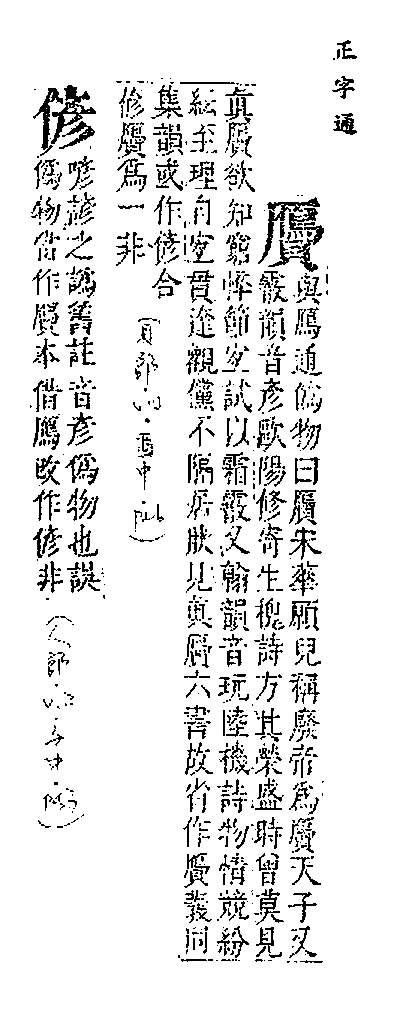 正字通
贗
與鴈通僞物曰贗宋華願兒稱廢帝爲贗天子又
霰韻音彥歐陽修寄生槐詩方其榮盛時曾莫見
眞贗欲知窮悴節宜試以霜霰又翰韻音玩陸機詩物情競紛
紜至理自宜貫達觀僅不隔居肰見眞贗六書故省作贋叢同
集韻或作偐合
偐贗爲一非
偐
喭諺之譌舊註音彥僞物也誤
僞物當作贗本借鴈改作偐非